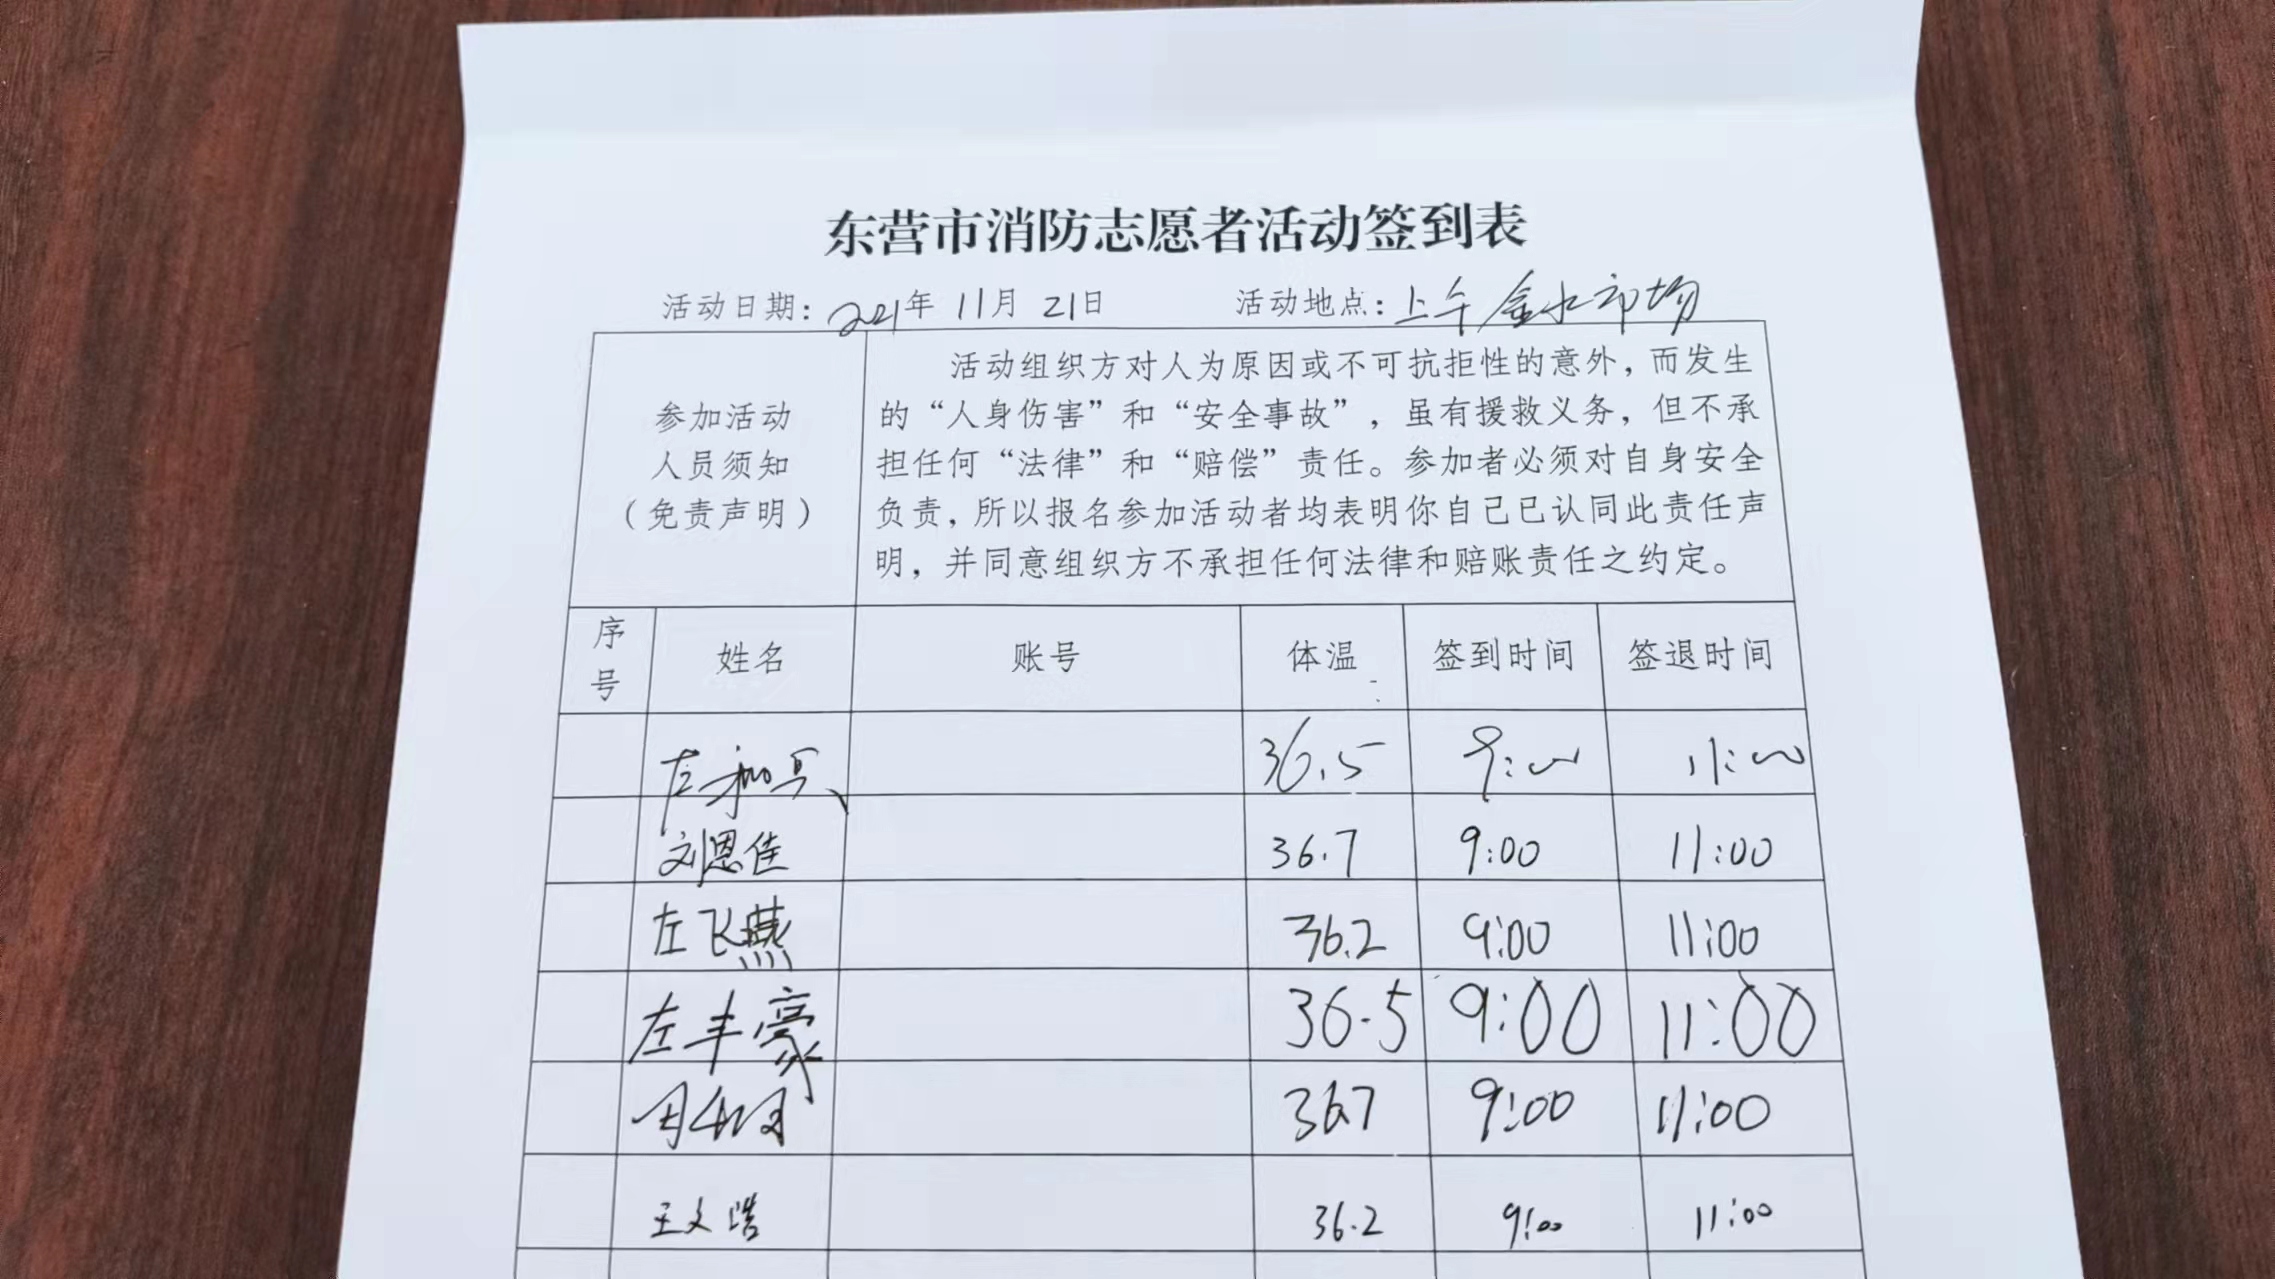 东营市消防志愿者活动签到表
活动日期：2021年 11月 21日 活动地点：上午金水市场
参加活动
人员须知
（免责声明）
活动组织方对人为原因或不可抗拒性的意外，而发生
的“人身伤害”和“安全事故”，虽有援救义务，但不承
担任何“法律”和“赔偿”责任。参加者必须对自身安全
负责，所以报名参加活动者均表明你自己已认同此责任声
明，并同意组织方不承担任何法律和赔账责任之约定。
序号 姓名 账号 体温 签到时间 签退时间
36.5 9:00 11:00
刘恩佳 36.7 9:00 11:00
左飞燕 36.2 9:00 11:00
左丰豪 36.5 9:00 11:00
36.7 9:00 11:00
王文浩 36.2 9:00 11:00